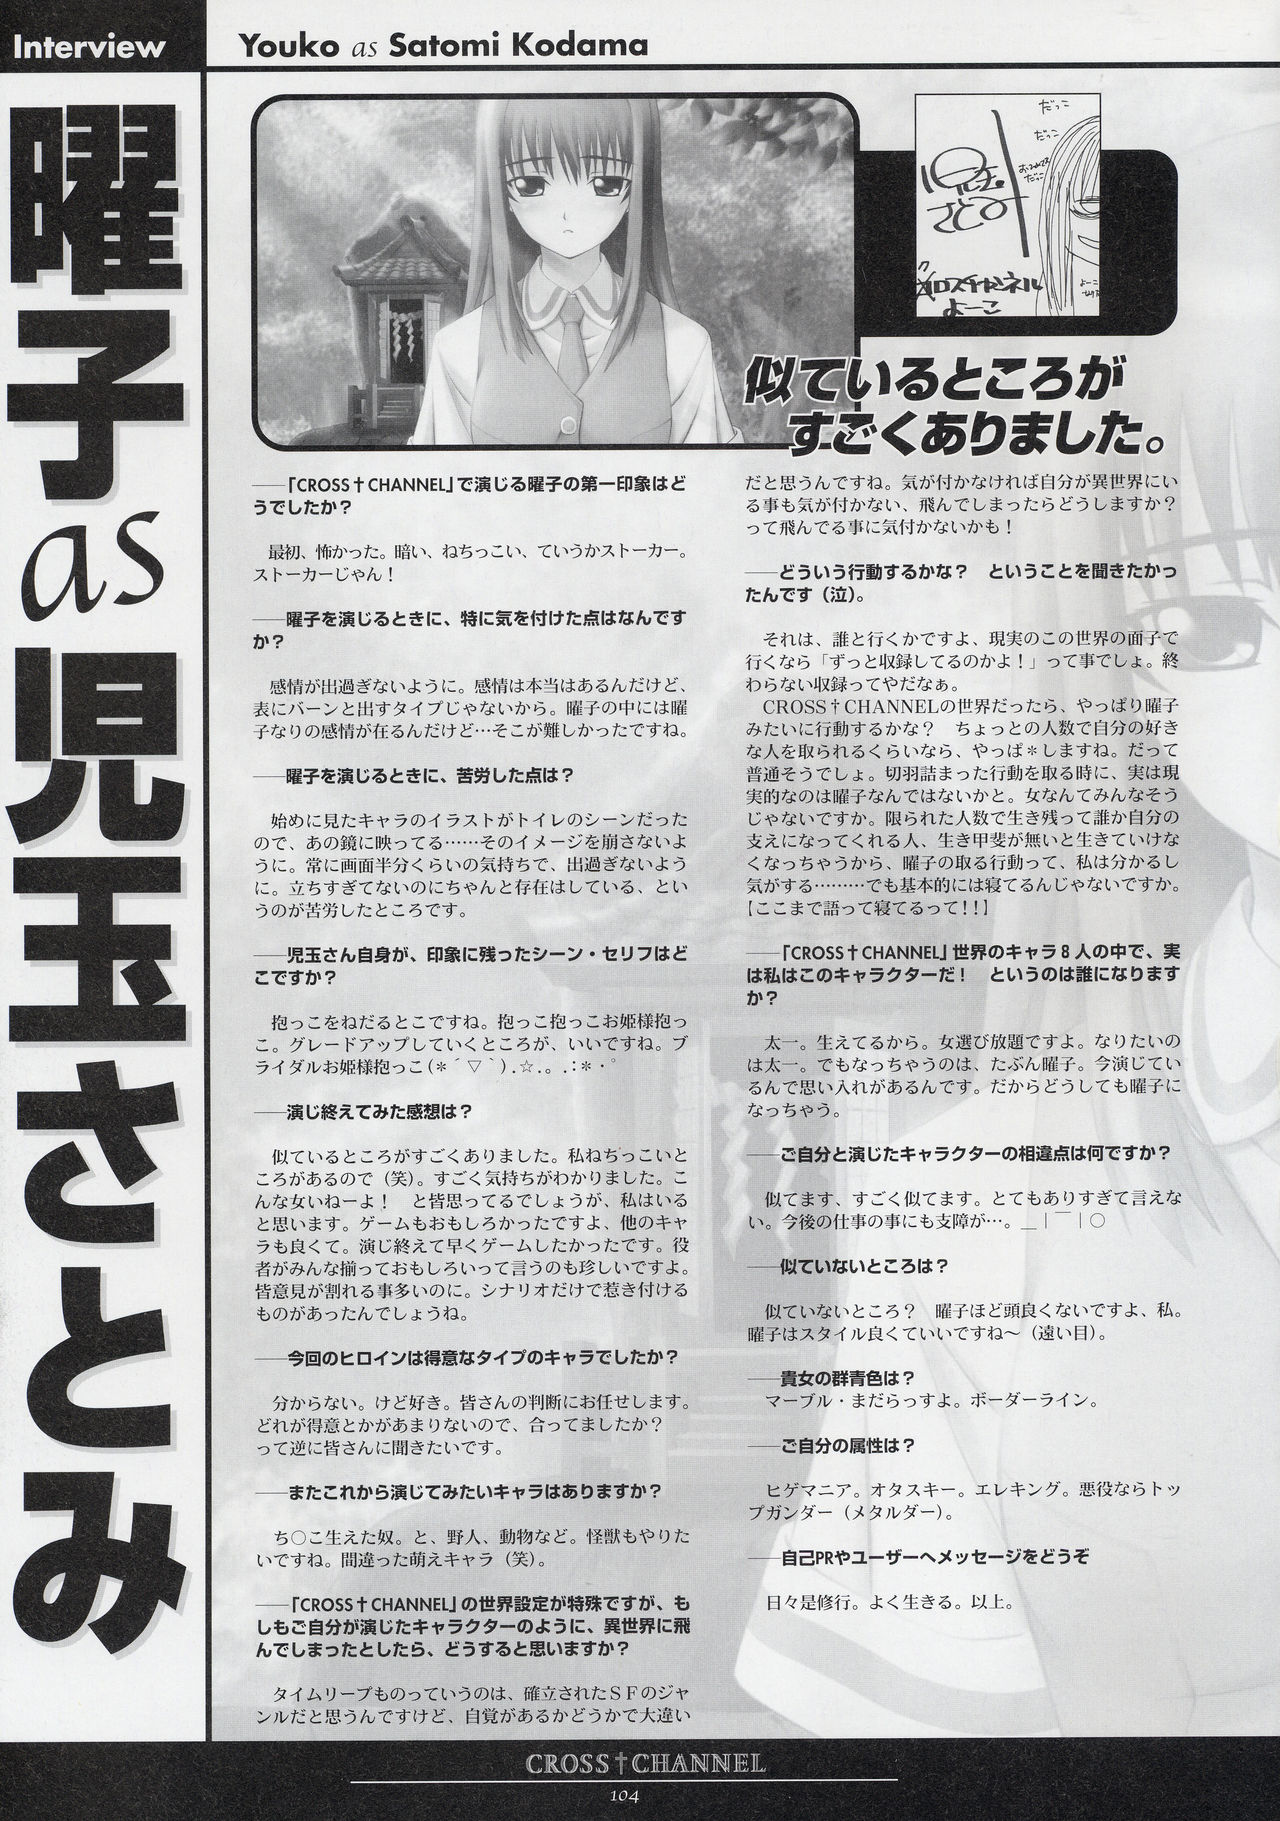 Interview
Youko as Satomi Kodama
曜子 as 児玉さとみ
だっこ
だっこ
だっこ
児玉
さとみ
クロスチャンネル
よーこ
よーこ
似ているところが
すごくありました。
──「CROSS†CHANNEL」で演じる曜子の第一印象はど
うでしたか？
最初、怖かった。暗い、ねちっこい、ていうかストーカー。
ストーカーじゃん！
──曜子を演じるときに、特に気を付けた点はなんです
か？
感情が出過ぎないように。感情は本当はあるんだけど、
表にバーンと出すタイプじゃないから。曜子の中には曜
子なりの感情が在るんだけど…そこが難しかったですね。
──曜子を演じるときに、苦労した点は？
始めに見たキャラのイラストがトイレのシーンだった
ので、あの鏡に映ってる……そのイメージを崩さないよ
うに。常に画面半分くらいの気持ちで、出過ぎないよう
に。立ちすぎてないのにちゃんと存在はしている、とい
うのが苦労したところです。
──児玉さん自身が、印象に残ったシーン・セリフはど
こですか？
抱っこをねだるとこですね。抱っこ抱っこお姫様抱っ
こ。グレードアップしていくところが、いいですね。ブ
ライダルお姫様抱っこ(＊´▽｀).☆.。.:＊・゜
──演じ終えてみた感想は？
似ているところがすごくありました。私ねぢっこいと
ころがあるので（笑）。すごく気持ちがわかりました。こ
んな女いねーよ！　と皆思ってるでしょうが、私はいる
と思います。ゲームもおもしろかったですよ、他のキャ
ラも良くて。演じ終えて早くゲームしたかったです。役
者がみんな揃っておもしろいって言うのも珍しいですよ。
皆意見が割れる事多いのに。シナリオだけで惹き付ける
ものがあったんでしょうね。
──今回のヒロインは得意なタイプのキャラでしたか？
分からない。けど好き。皆さんの判断にお任せします。
どれが得意とかがあまりないので、合ってましたか？
って逆に皆さんに聞きたいです。
──またこれから演じてみたいキャラはありますか？
ち○こ生えた奴。と、野人、動物など。怪獣もやりた
いですね。間違った萌えキャラ（笑）。
──「CROSS†CHANNEL」の世界設定が特殊ですが、も
しもご自分が演じたキャラクターのように、異世界に飛
んでしまったとしたら、どうすると思いますか？
タイムリープものっていうのは、確立されたＳＦのジャ
ンルだと思うんですけど、自覚があるかどうかで大違い
だと思うんですね。気が付かなければ自分が異世界にい
る事も気が付かない、飛んでしまったらどうしますか？
って飛んでる事に気付かないかも！
──どういう行動するかな？　ということを聞きたかっ
たんです（泣）。
それは、誰と行くかですよ、現実のこの世界の面子で
行くなら「ずっと収録してるのかよ！」って事でしょ。終
わらない収録ってやだなぁ。
CROSS†CHANNELの世界だったら、やっぱり曜子
みたいに行動するかな？　ちょっとの人数で自分の好き
な人を取られるくらいなら、やっぱ＊しますね。だって
普通そうでしょ。切羽詰まった行動を取る時に、実は現
実的なのは曜子なんではないかと。女なんてみんなそう
じゃないですか。限られた人数で生き残って誰か自分の
支えになってくれる人、生き甲斐が無いと生きていけな
くなっちゃうから、曜子の取る行動って、私は分かるし
気がする………でも基本的には寝てるんじゃないですか。
【ここまで語って寝てるって！！】
──「CROSS†CHANNEL」世界のキャラ８人の中で、実
は私はこのキャラクターだ！　というのは誰になります
か？
太一。生えてるから。女選び放題ですよ。なりたいの
は太一。でもなっちゃうのは、たぶん曜子。今演じてい
るんで思い入れがあるんです。だからどうしても曜子に
なっちゃう。
──ご自分と演じたキャラクターの相違点は何ですか？
似てます、すごく似てます。とてもありすぎて言えな
い。今後の仕事の事にも支障が…。＿｜￣｜○
──似ていないところは？
似ていないところ？　曜子ほど頭良くないですよ、私。
曜子はスタイル良くていいですね〜（遠い目）。
──貴女の群青色は？
マーブル・まだらっすよ。ボーダーライン。
──ご自分の属性は？
ヒゲマニア。オタスキー。エレキング。悪役ならトッ
プガンダー（メタルダー）。
──自己PRやユーザーへメッセージをどうぞ
日々是修行。よく生きる。以上。
CROSS†CHANNEL
104